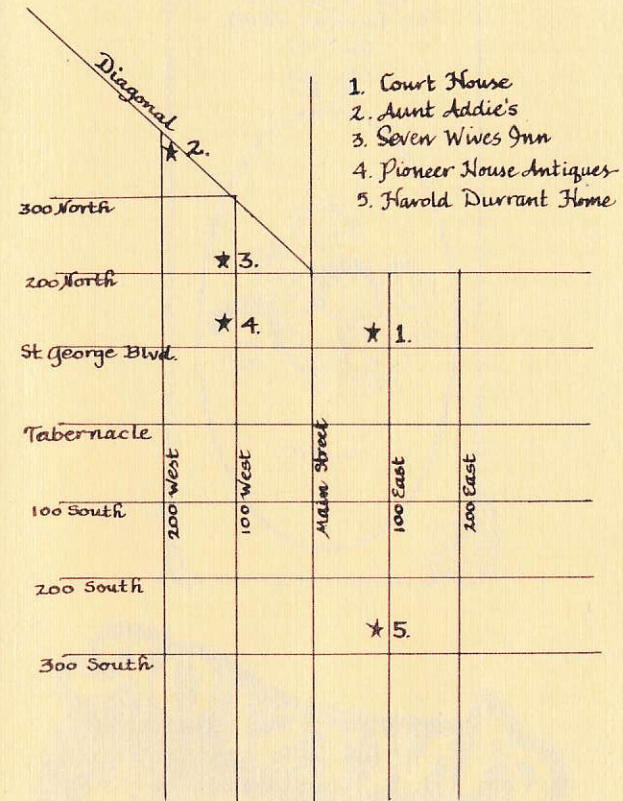 Diagonal
1. Court House
2. Aunt Addie's
3. Seven Wives Inn
4. Pioneer House Antiques
5. Harold Durrant Home
2.
300 North
3.
200 North
4.
1.
St George Blvd.
Tabernacle
200 West
100 West
Main Street
100 East
200 East
100 South
200 South
5.
300 South